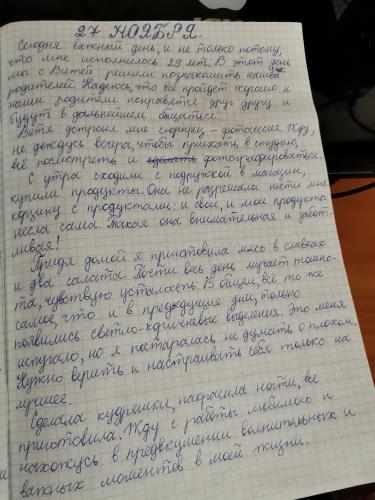 27 НОЯБРЯ.
Сегодня важный день, и не только потому,
что мне исполнилось 29 лет. В этот день
мы с Витей решили познакомить наших
родителей. Надеюсь, что все пройдет хорошо и
наши родители понравятся друг другу и
будут в дальнейшем общаться.
Витя устроил мне сюрприз - фотосессия. Жду,
не дождусь вечера, чтобы приехать в студию,
всё посмотреть и сделать фотографироваться.
С утра сходили с подружкой в магазин,
купили продукты. Она не разрешала нести мне
корзину с продуктами: и свои, и мои продукты
несла сама. Такая она внимательная и забот-
ливая!
Придя домой я приготовила мясо в сливках
и два салата. Почти весь день мучает тошно-
та, чувствую усталость. В общем, всё то же
самое, что и в предыдущие дни, только
появились светло-коричневые выделения. Это меня
испугало, но я постаралась не думать о плохом.
Нужно верить и настраивать себя только на
лучшее.
Сделала кудряшки, накрасила ногти, все
приготовила. Жду с работы любимого и
нахожусь в предвкушении волнительных и
важных моментов в моей жизни.